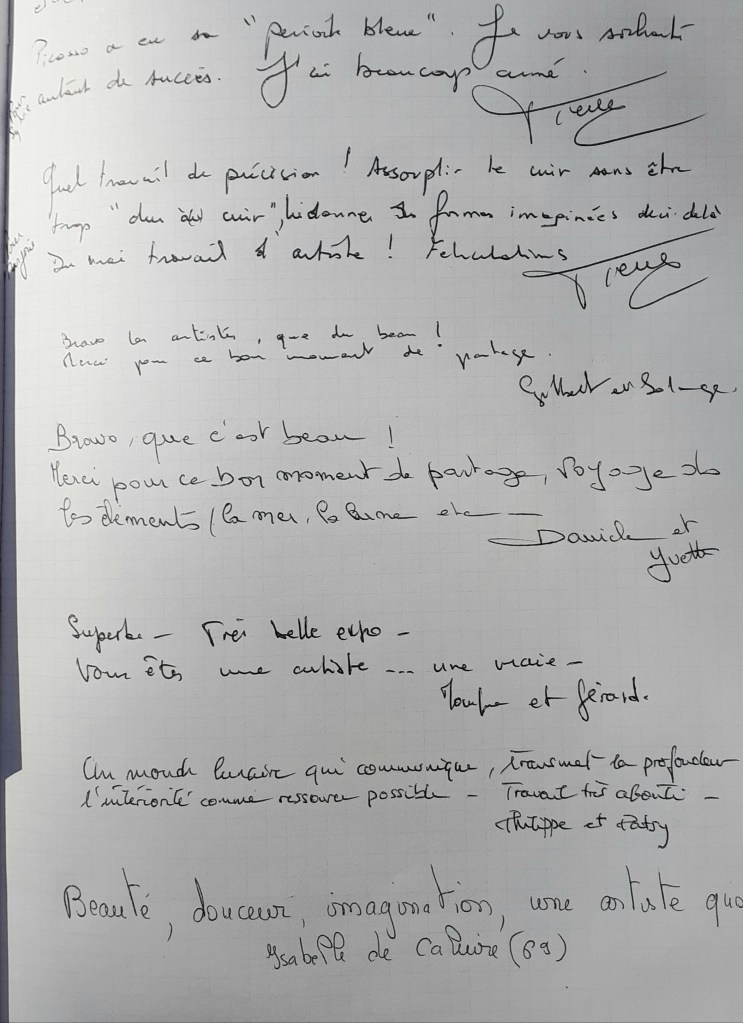 Picasso a eu sa "période bleue". Je vous souhaite
autant de succès. J'ai beaucoup aimé.
Pierre
Quel travail de précision ! Assouplir le cuir sans être
trop "dur à cuir", lui donner des formes imaginées deci-delà
Du vrai travail d'artiste ! Félicitations
Pierre
Bravo les artistes, que du beau !
Merci pour ce bon moment de partage.
Gilbert et Solange.
Bravo, que c'est beau !
Merci pour ce bon moment de partage, Voyage ds
les éléments (la mer, la lune etc
Daniele et
Yvette
Superbe - Très belle expo -
Vous êtes une artiste ... une vraie -
et Gérard.
Un monde lunaire qui communique, transmet la profondeur
l'intériorité comme ressource possible - Travail très abouti -
Philippe et Patsy
Beauté, douceur, imagination, une artiste quoi
Ysabelle de Caluire (69)